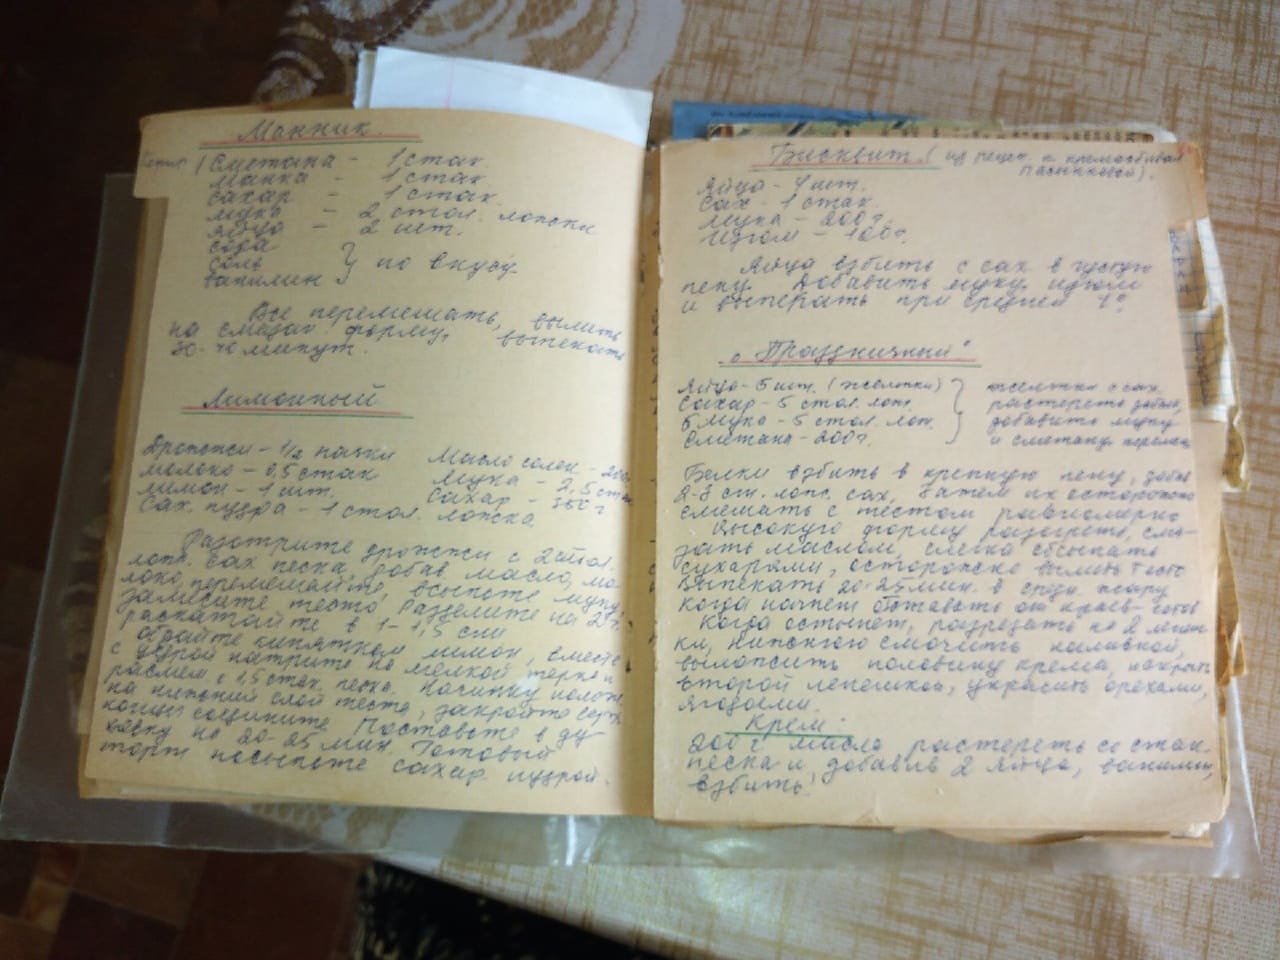 Манник.
Сметана - 1 стак.
Манка - 1 стак
сахар - 1 стак.
мука - 2 стол. ложки
яйца - 2 шт.
сода
соль } по вкусу.
ванилин
Все перемешать, вылить
на смазан. форму, выпекать
30-40 минут.
Лимонный
Дрожжи - 1/2 пачки
молоко - 0,5 стак
лимон - 1 шт.
Сах. пудра - 1 стол. ложка
Масло слив. - 200
Мука - 2,5 стак
Сахар - 300 г
Разотрите дрожжи с 2 стол.
лож. сах песка, добав масло, мо-
локо, перемешайте, всыпьте муку,
замесите тесто. Разделите на 2 ч.
раскатайте в 1-1,5 см
Обдайте кипятком лимон, вместе
с цедрой натрите на мелкой терке и
с 1,5 стак. песка. Начинку полож
на нижний слой теста, закройте
концы соедините. Поставьте в ду-
ховку на 20-25 мин. Готовый
торт посыпьте сахар. пудрой.
Бисквит. (из рецеп. к кремосбивал
).
Яйца - 4 шт.
Сах - 1 стак.
Мука - 200 г.
Изюм - 100 г.
Яйца взбить с сах в густую
пену. Добавить муку, изюм
и выпекать при средней t°
"Праздничный"
Яйца - 5 шт. (желтки)
Сахар - 5 стол. лож.
Мука - 5 стол. лож.
Сметана - 200 г.
} желтки с сах.
растереть добела,
добавить муку
и сметану, перемеш
Белки взбить в крепкую пену, добав
2-3 ст. лож. сах, затем их осторожно
смешать с тестом равномерно
Высокую форму разогреть, сма-
зать маслом, слегка обсыпать
сухарями, осторожно вылить тесто
Выпекать 20-25 мин. в средн. жару
когда начнет отставать от краев - готов
Когда остынет, разрезать на 2 лепеш-
ки, нижнюю смочить наливкой,
выложить половину крема, накрыть
второй лепешкой, украсить орехами,
ягодами.
Крем:
200 г масла растереть со стак.
песка и добавив 2 яйца, ванилин,
взбить.